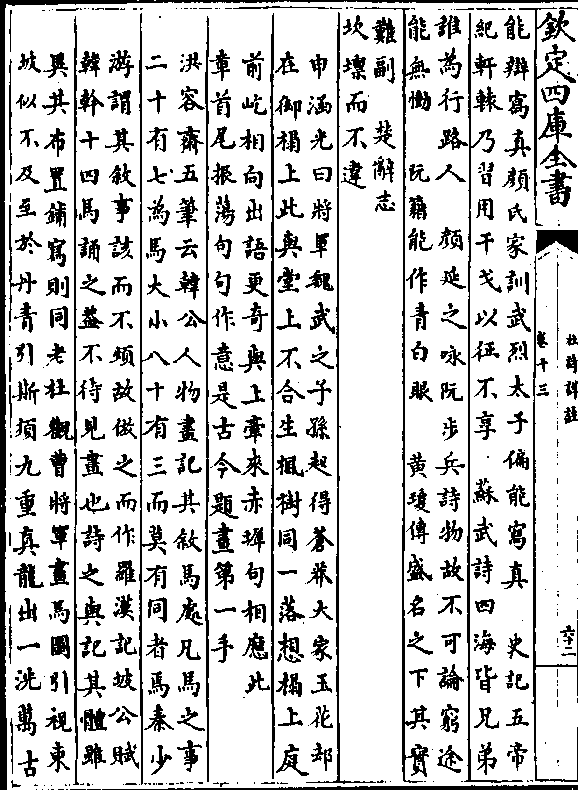 欽定四庫全書
杜詩詳註
卷十三
六十二
能辯寫真顔氏家訓武烈太子偏能寫真　史記五帝
紀軒轅乃習用干戈以征不享　蘇武詩四海皆兄弟
誰為行路人　顔延之咏阮步兵詩物故不可論窮途
能無慟　阮籍能作青白眼　黄瓊傳盛名之下其實
難副　楚辭志
坎壈而不違
申涵光曰將軍魏武之子孫起得蒼莽大家玉花却
在御榻上此與堂上不合生楓樹同一落想榻上庭
前屹相向出語更奇與上牽來赤墀句相應此
章首尾振蕩句句作意是古今題畫第一手
洪容齋五筆云韓公人物畫記其敘馬處凡馬之事
二十有七為馬大小八十有三而莫有同者馬秦少
游謂其敘事該而不煩故倣之而作羅漢記坡公賦
韓幹十四馬誦之蓋不待見畫也詩之與記其體雖
異其布置鋪寫則同老杜觀曹將軍畫馬圖引視東
坡似不及至於丹青引斯須九重真龍出一洗萬古